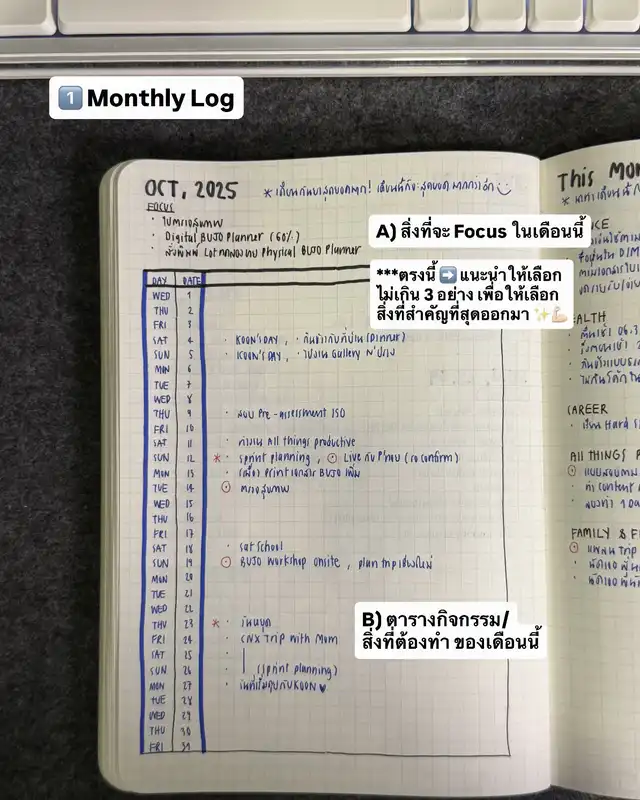 1 Monthly Log
OCT, 2025
FOCUS
· ไปตรวจสุขภาพ
· Digital BUJO Planner (60%)
· สั่งพิมพ์ Lot ทดลองทำ Physical BUJO Planner
A) สิ่งที่จะ Focus ในเดือนนี้
***ตรงนี้ ➡️ แนะนำให้เลือก
ไม่เกิน 3 อย่าง เพื่อให้เลือก
สิ่งที่สำคัญที่สุดออกมา ✨💪🏻
DAY DATE
WED 1
THU 2
FRI 3
SAT 4 · KOON'S DAY,
SUN 5 · KOON'S DAY, · ไปงาน Gallery
MON 6
TUE 7
WED 8
THU 9 · สอบ Pre-assessment ISO
FRI 10
SAT 11 · ทำงาน All things productive
SUN 12 * · sprint planning, Live กับ (reconfirm)
MON 13 · Print เอกสาร BUJO เพิ่ม
TUE 14 ตรวจสุขภาพ
WED 15
THU 16
FRI 17
SAT 18 · sat school
SUN 19 BUJO Workshop onsite, plan trip เชียงใหม่
MON 20
TUE 21
WED 22
THU 23 * · วันหยุด
FRI 24 · CNX Trip with Mom
SAT 25
SUN 26 · (sprint planning)
MON 27 · KOON ♥
TUE 28
WED 29
THU 30
FRI 31
B) ตารางกิจกรรม/
สิ่งที่ต้องทำ ของเดือนนี้
This Mon
CAREER
Hard
All THINGS P
FAMILY & F